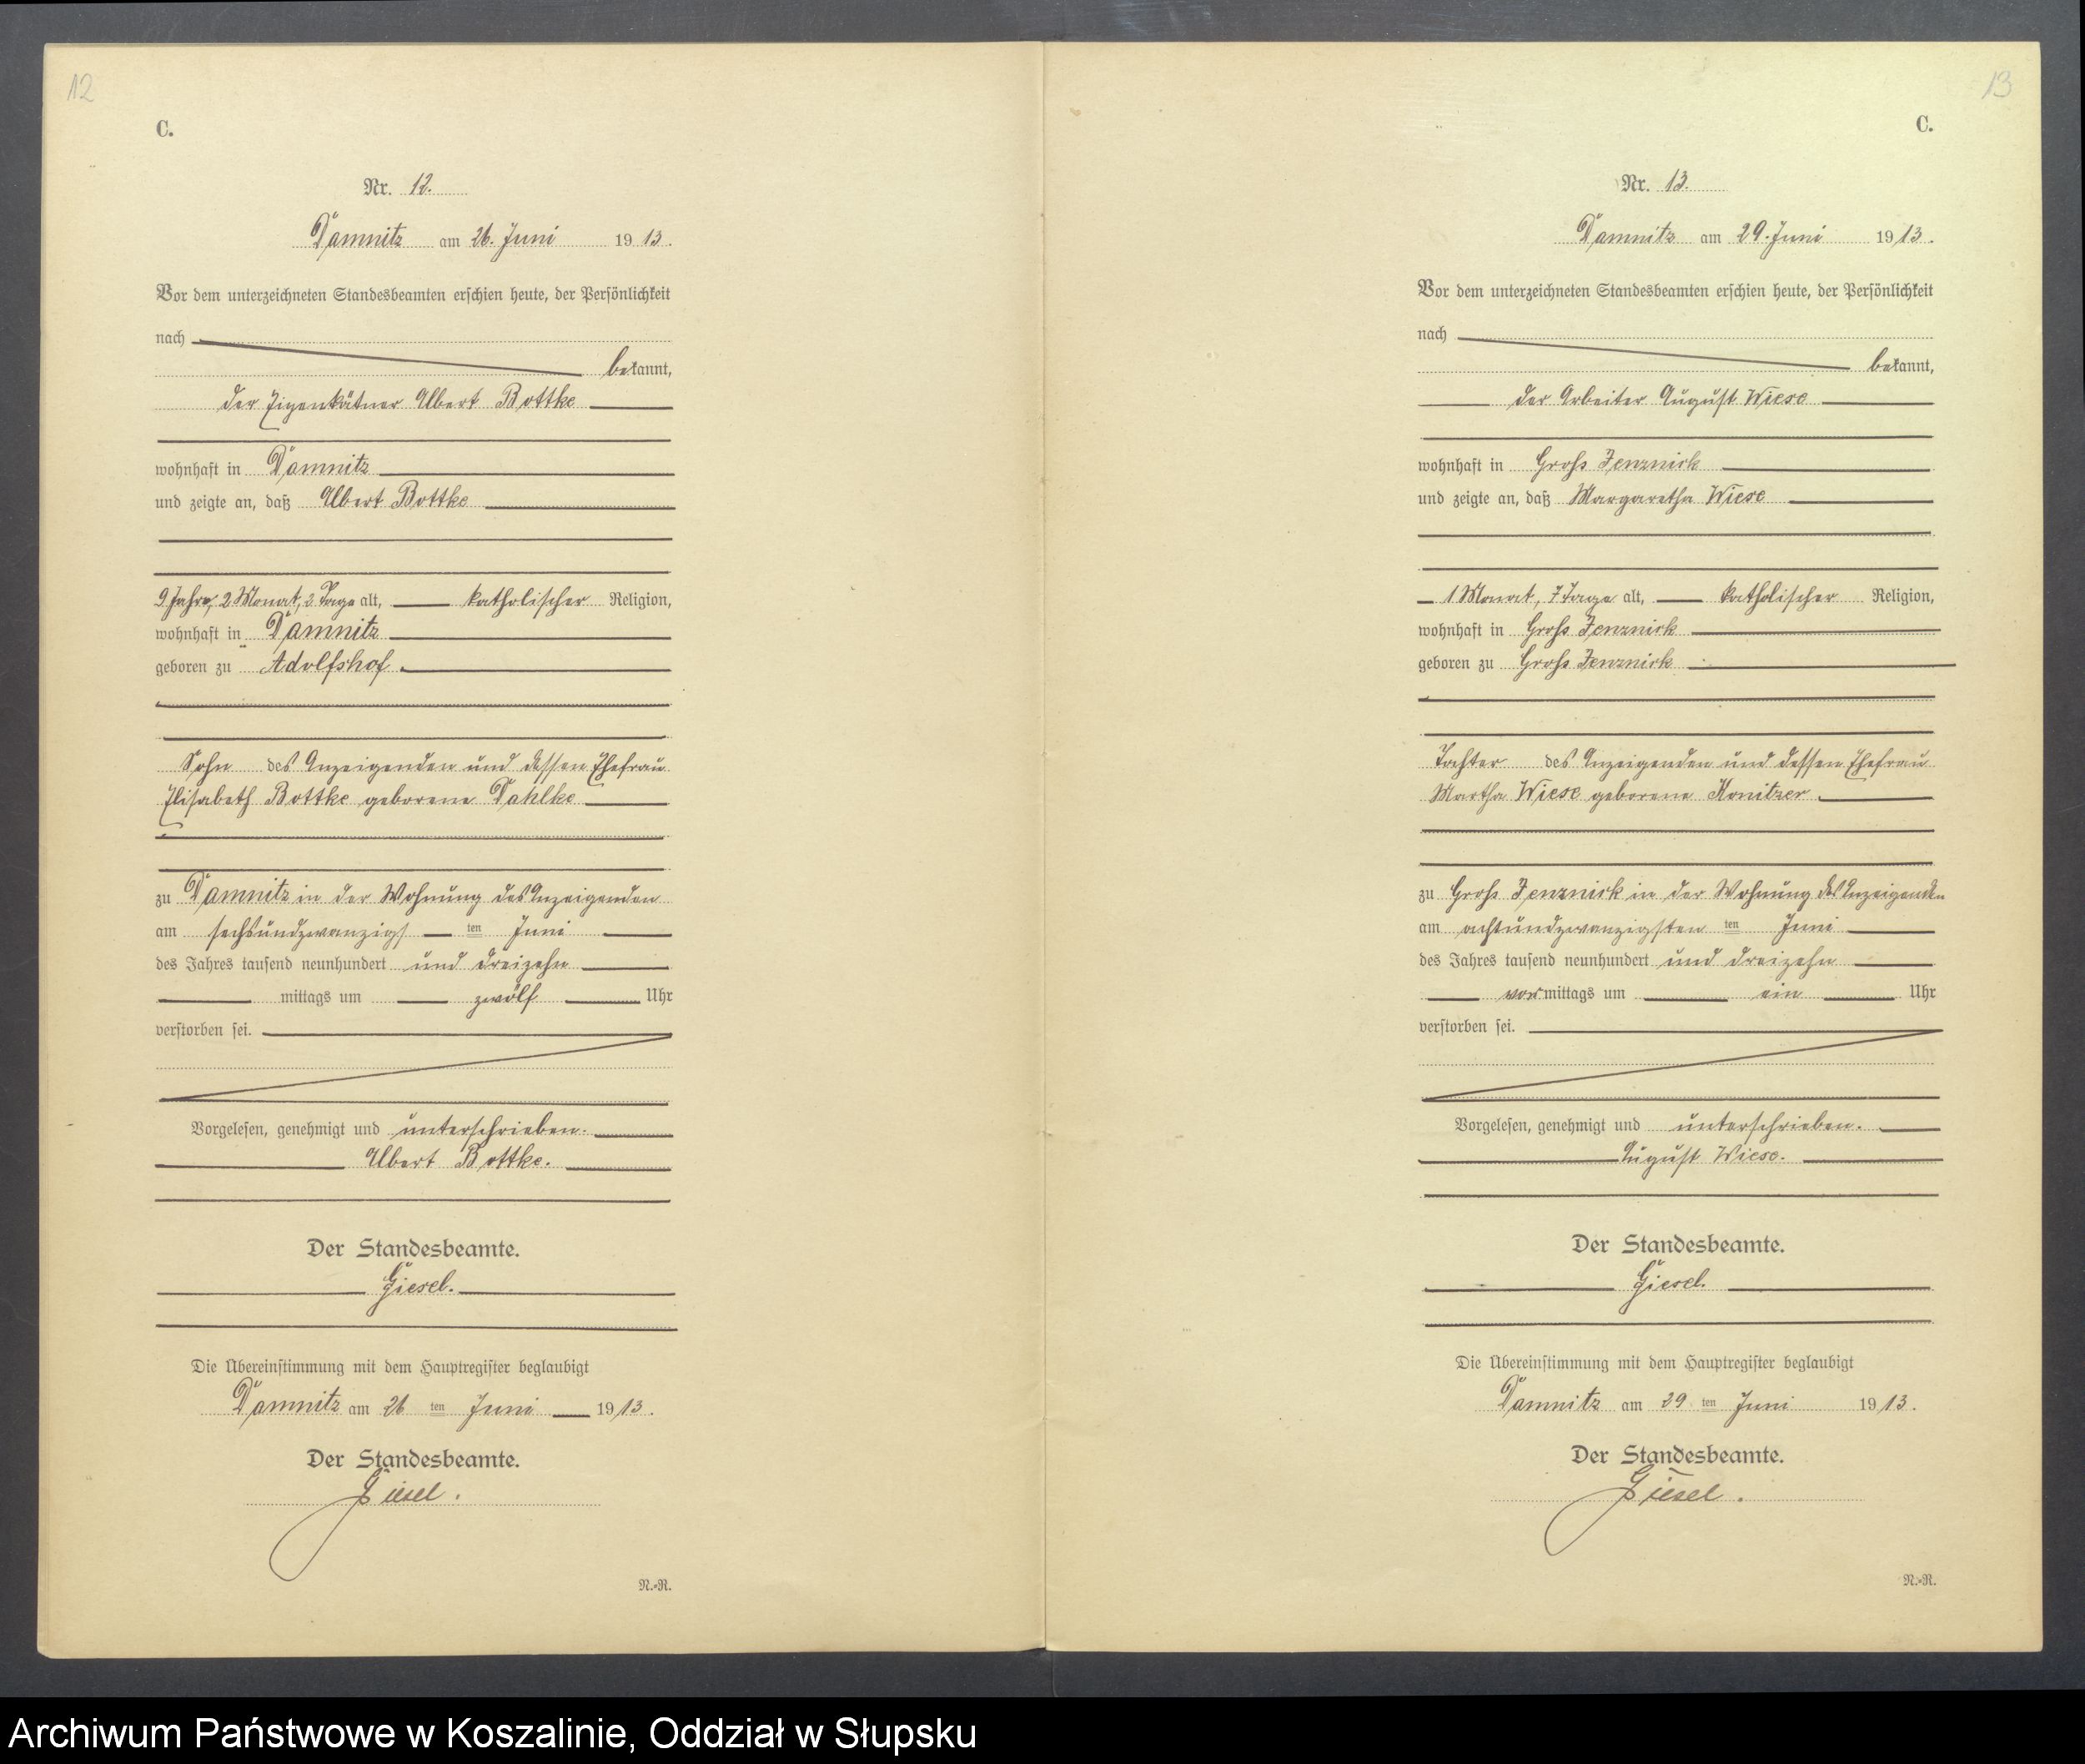 12
C.
Nr. 12.
Damnitz am 26. Juni 1913.
Vor dem unterzeichneten Standesbeamten erschien heute, der Persönlichkeit
nach
bekannt,
der Eigenkätner Albert Bottke
wohnhaft in Damnitz
und zeigte an, daß Albert Bottke
9 Jahre, 2 Monat, 2 Tage alt, katholischer Religion,
wohnhaft in Damnitz
geboren zu Adolfshof
Sohn des Anzeigenden und dessen Ehefrau
Elisabeth Bottke geborene Dahlke
zu Damnitz in der Wohnung des Anzeigenden
am sechsundzwanzigs ten Juni
des Jahres tausend neunhundert und dreizehn
mittags um zwölf Uhr
verstorben sei.
Vorgelesen, genehmigt und unterschrieben.
Albert Bottke.
Der Standesbeamte.
Giesel.
Die Übereinstimmung mit dem Hauptregister beglaubigt
Damnitz am 26 ten Juni 1913.
Der Standesbeamte.
Giesel.
N.-R.
13
C.
Nr. 13.
Damnitz am 29. Juni 1913.
Vor dem unterzeichneten Standesbeamten erschien heute, der Persönlichkeit
nach
bekannt,
der Arbeiter August Wiese
wohnhaft in Groß Jenznick
und zeigte an, daß Margaretha Wiese
1 Monat, 7 Tage alt, katholischer Religion,
wohnhaft in Groß Jenznick
geboren zu Groß Jenznick
Tochter des Anzeigenden und dessen Ehefrau
Martha Wiese geborene Konitzer
zu Groß Jenznick in der Wohnung des Anzeigenden
am achtundzwanzigsten ten Juni
des Jahres tausend neunhundert und dreizehn
vormittags um ein Uhr
verstorben sei.
Vorgelesen, genehmigt und unterschrieben.
August Wiese.
Der Standesbeamte.
Giesel.
Die Übereinstimmung mit dem Hauptregister beglaubigt
Damnitz am 29 ten Juni 1913.
Der Standesbeamte.
Giesel.
N.-R.
Archiwum Państwowe w Koszalinie, Oddział w Słupsku